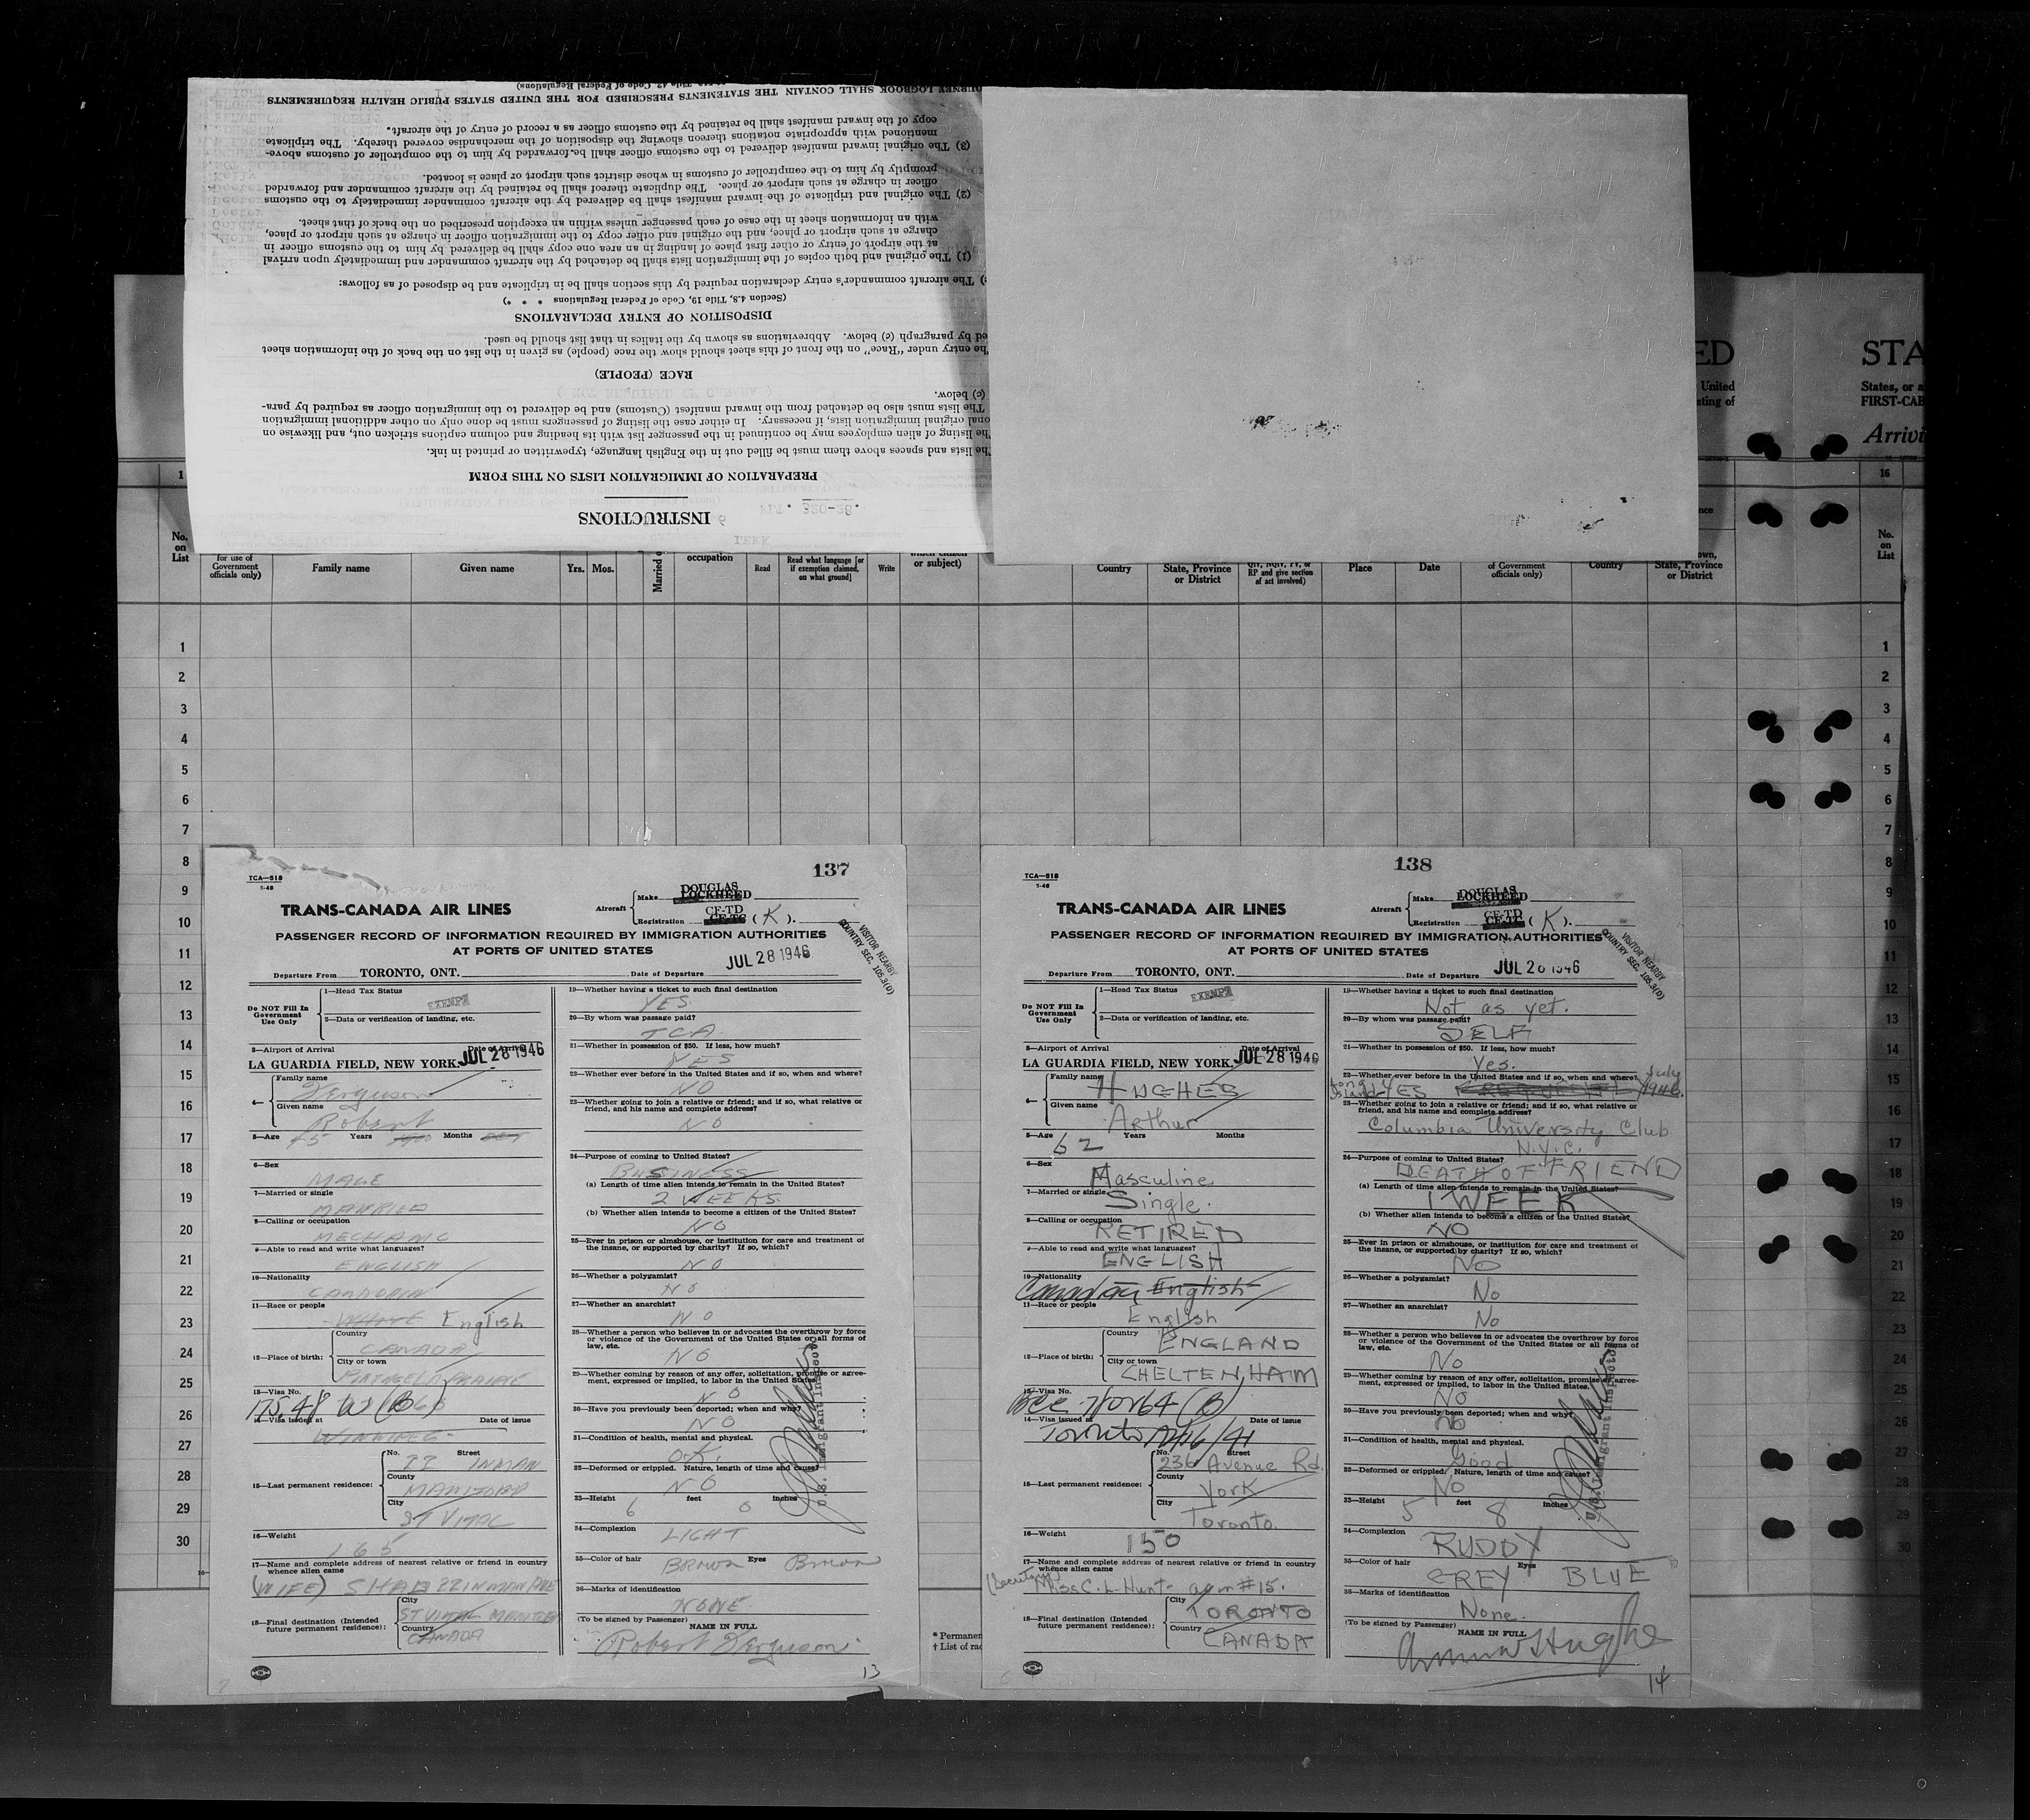 INSTRUCTIONS
FLT. 320-28.
PREPARATION OF IMMIGRATION LISTS ON THIS FORM
The lists and spaces above them must be filled out in the English language, typewritten or printed in ink.
The listing of alien employees may be continued in the passenger list with its heading and column captions stricken out, and likewise on
onal original immigration lists, if necessary. In either case the listing of passengers must be done only on other additional immigration
The lists must also be detached from the inward manifest (Customs) and be delivered to the immigration officer as required by para-
(c) below.
RACE (PEOPLE)
The entry under "Race" on the front of this sheet should show the race (people) as given in the list on the back of the information sheet
ed by paragraph (c) below. Abbreviations as shown by the italics in that list should be used.
DISPOSITION OF ENTRY DECLARATIONS
(Section 4.8, Title 19, Code of Federal Regulations * * *)
) The aircraft commander's entry declaration required by this section shall be in triplicate and be disposed of as follows:
(1) The original and both copies of the immigration lists shall be detached by the aircraft commander and immediately upon arrival
at the airport of entry or other first place of landing in an area one copy shall be delivered by him to the customs officer in
charge at such airport or place, and the original and other copy to the immigration officer in charge at such airport or place,
with an information sheet in the case of each passenger unless within an exception prescribed on the back of that sheet.
(2) The original and triplicate of the inward manifest shall be delivered by the aircraft commander immediately to the customs
officer in charge at such airport or place. The duplicate thereof shall be retained by the aircraft commander and forwarded
promptly by him to the comptroller of customs in whose district such airport or place is located.
(3) The original inward manifest delivered to the customs officer shall be forwarded by him to the comptroller of customs above-
mentioned with appropriate notations thereon showing the disposition of the merchandise covered thereby. The triplicate
copy of the inward manifest shall be retained by the customs officer as a record of entry of the aircraft.
OURNEY LOGBOOK SHALL CONTAIN THE STATEMENTS PRESCRIBED FOR THE UNITED STATES PUBLIC HEALTH REQUIREMENTS
Title 42, Code of Federal Regulations)
ED STA
United States, or a
sting of FIRST-CAB
Arrivi
1 16
No. on List
for use of Government officials only)
Family name
Given name
Yrs. Mos.
Married o
occupation
Read
Read what language [or if exemption claimed, on what ground]
Write
which citizen or subject)
Country
State, Province or District
RP and give section of act involved)
Place
Date
of Government officials only)
Country
State, Province or District
No. on List
1 1
2 2
3 3
4 4
5 5
6 6
7 7
8 8
9 9
10 10
11 11
12 12
13 13
14 14
15 15
16 16
17 17
18 18
19 19
20 20
21 21
22 22
23 23
24 24
25 25
26 26
27 27
28 28
29 29
30 30
* Permanen
† List of rac
137
TCA—518
5-46
TRANS-CANADA AIR LINES
Aircraft
Make DOUGLAS LOCKHEED
Registration CF-TD CF-TC (K).
PASSENGER RECORD OF INFORMATION REQUIRED BY IMMIGRATION AUTHORITIES
AT PORTS OF UNITED STATES
VISITOR NEARBY
COUNTRY SEC. 105.3(D)
Departure From TORONTO, ONT. Date of Departure JUL 28 1946
Do NOT Fill In Government Use Only
1—Head Tax Status EXEMPT
2—Data or verification of landing, etc.
3—Airport of Arrival Date of Arrival
LA GUARDIA FIELD, NEW YORK. JUL 28 1946
4— Family name Ferguson
Given name Robert
5—Age 45 Years Months
6—Sex MALE
7—Married or single MARRIED
8—Calling or occupation MECHANIC
9—Able to read and write what languages? ENGLISH
10—Nationality CANADIAN
11—Race or people WHITE English
12—Place of birth: Country CANADA
City or town PORTAGE LA PRAIRIE
13—Visa No. 17548 W (B)
14—Visa issued at Date of issue
WINNIPEG
15—Last permanent residence: No. Street 22 INMAN
County MANITOBA
City ST VITAL
16—Weight 165
17—Name and complete address of nearest relative or friend in country whence alien came
(WIFE) 22 INMAN AVE
18—Final destination (Intended future permanent residence): City ST VITAL MANITOBA
Country CANADA
19—Whether having a ticket to such final destination
YES
20—By whom was passage paid?
TCA
21—Whether in possession of $50. If less, how much?
YES
22—Whether ever before in the United States and if so, when and where?
NO
23—Whether going to join a relative or friend; and if so, what relative or friend, and his name and complete address?
NO
24—Purpose of coming to United States?
BUSINESS
(a) Length of time alien intends to remain in the United States?
2 WEEKS
(b) Whether alien intends to become a citizen of the United States?
NO
25—Ever in prison or almshouse, or institution for care and treatment of the insane, or supported by charity? If so, which?
NO
26—Whether a polygamist?
NO
27—Whether an anarchist?
NO
28—Whether a person who believes in or advocates the overthrow by force or violence of the Government of the United States or all forms of law, etc.
NO
29—Whether coming by reason of any offer, solicitation, promise or agreement, expressed or implied, to labor in the United States
NO
30—Have you previously been deported; when and why?
NO
31—Condition of health, mental and physical.
O.K.
32—Deformed or crippled. Nature, length of time and cause?
NO
33—Height 6 feet 0 inches
34—Complexion LIGHT
35—Color of hair BROWN Eyes Brown
36—Marks of identification
NONE
(To be signed by Passenger) NAME IN FULL
Robert Ferguson
U.S. Immigrant Inspector
13
138
TCA—518
5-46
TRANS-CANADA AIR LINES
Aircraft
Make DOUGLAS LOCKHEED
Registration CF-TD CF-TC (K).
PASSENGER RECORD OF INFORMATION REQUIRED BY IMMIGRATION AUTHORITIES
AT PORTS OF UNITED STATES
VISITOR NEARBY
COUNTRY SEC. 105.3(D)
Departure From TORONTO, ONT. Date of Departure JUL 28 1946
Do NOT Fill In Government Use Only
1—Head Tax Status EXEMPT
2—Data or verification of landing, etc.
3—Airport of Arrival Date of Arrival
LA GUARDIA FIELD, NEW YORK. JUL 28 1946
4— Family name HUGHES
Given name Arthur
5—Age 62 Years Months
6—Sex Masculine
7—Married or single Single.
8—Calling or occupation RETIRED
9—Able to read and write what languages? ENGLISH
10—Nationality Canadian English
11—Race or people English
12—Place of birth: Country ENGLAND
City or town CHELTENHAM
13—Visa No. BCC (B)
14—Visa issued at Date of issue
Toronto
15—Last permanent residence: No. Street 236 Avenue Rd.
County York
City Toronto.
16—Weight 150
17—Name and complete address of nearest relative or friend in country whence alien came
(Secretary) Miss C. L. Hunt- as in #15.
18—Final destination (Intended future permanent residence): City TORONTO
Country CANADA
19—Whether having a ticket to such final destination
Not as yet.
20—By whom was passage paid?
SELF
21—Whether in possession of $50. If less, how much?
Yes.
22—Whether ever before in the United States and if so, when and where?
Long Island YES July 1946.
23—Whether going to join a relative or friend; and if so, what relative or friend, and his name and complete address?
Columbia University Club
N.Y.C.
24—Purpose of coming to United States?
DEATH OF FRIEND
(a) Length of time alien intends to remain in the United States?
1 WEEK
(b) Whether alien intends to become a citizen of the United States?
NO
25—Ever in prison or almshouse, or institution for care and treatment of the insane, or supported by charity? If so, which?
No
26—Whether a polygamist?
No
27—Whether an anarchist?
No
28—Whether a person who believes in or advocates the overthrow by force or violence of the Government of the United States or all forms of law, etc.
No
29—Whether coming by reason of any offer, solicitation, promise or agreement, expressed or implied, to labor in the United States
NO
30—Have you previously been deported; when and why?
no
31—Condition of health, mental and physical.
Good
32—Deformed or crippled. Nature, length of time and cause?
No
33—Height 5 feet 8 inches
34—Complexion RUDDY
35—Color of hair GREY Eyes BLUE
36—Marks of identification
None.
(To be signed by Passenger) NAME IN FULL
Arthur Hughes
U.S. Immigrant Inspector
14